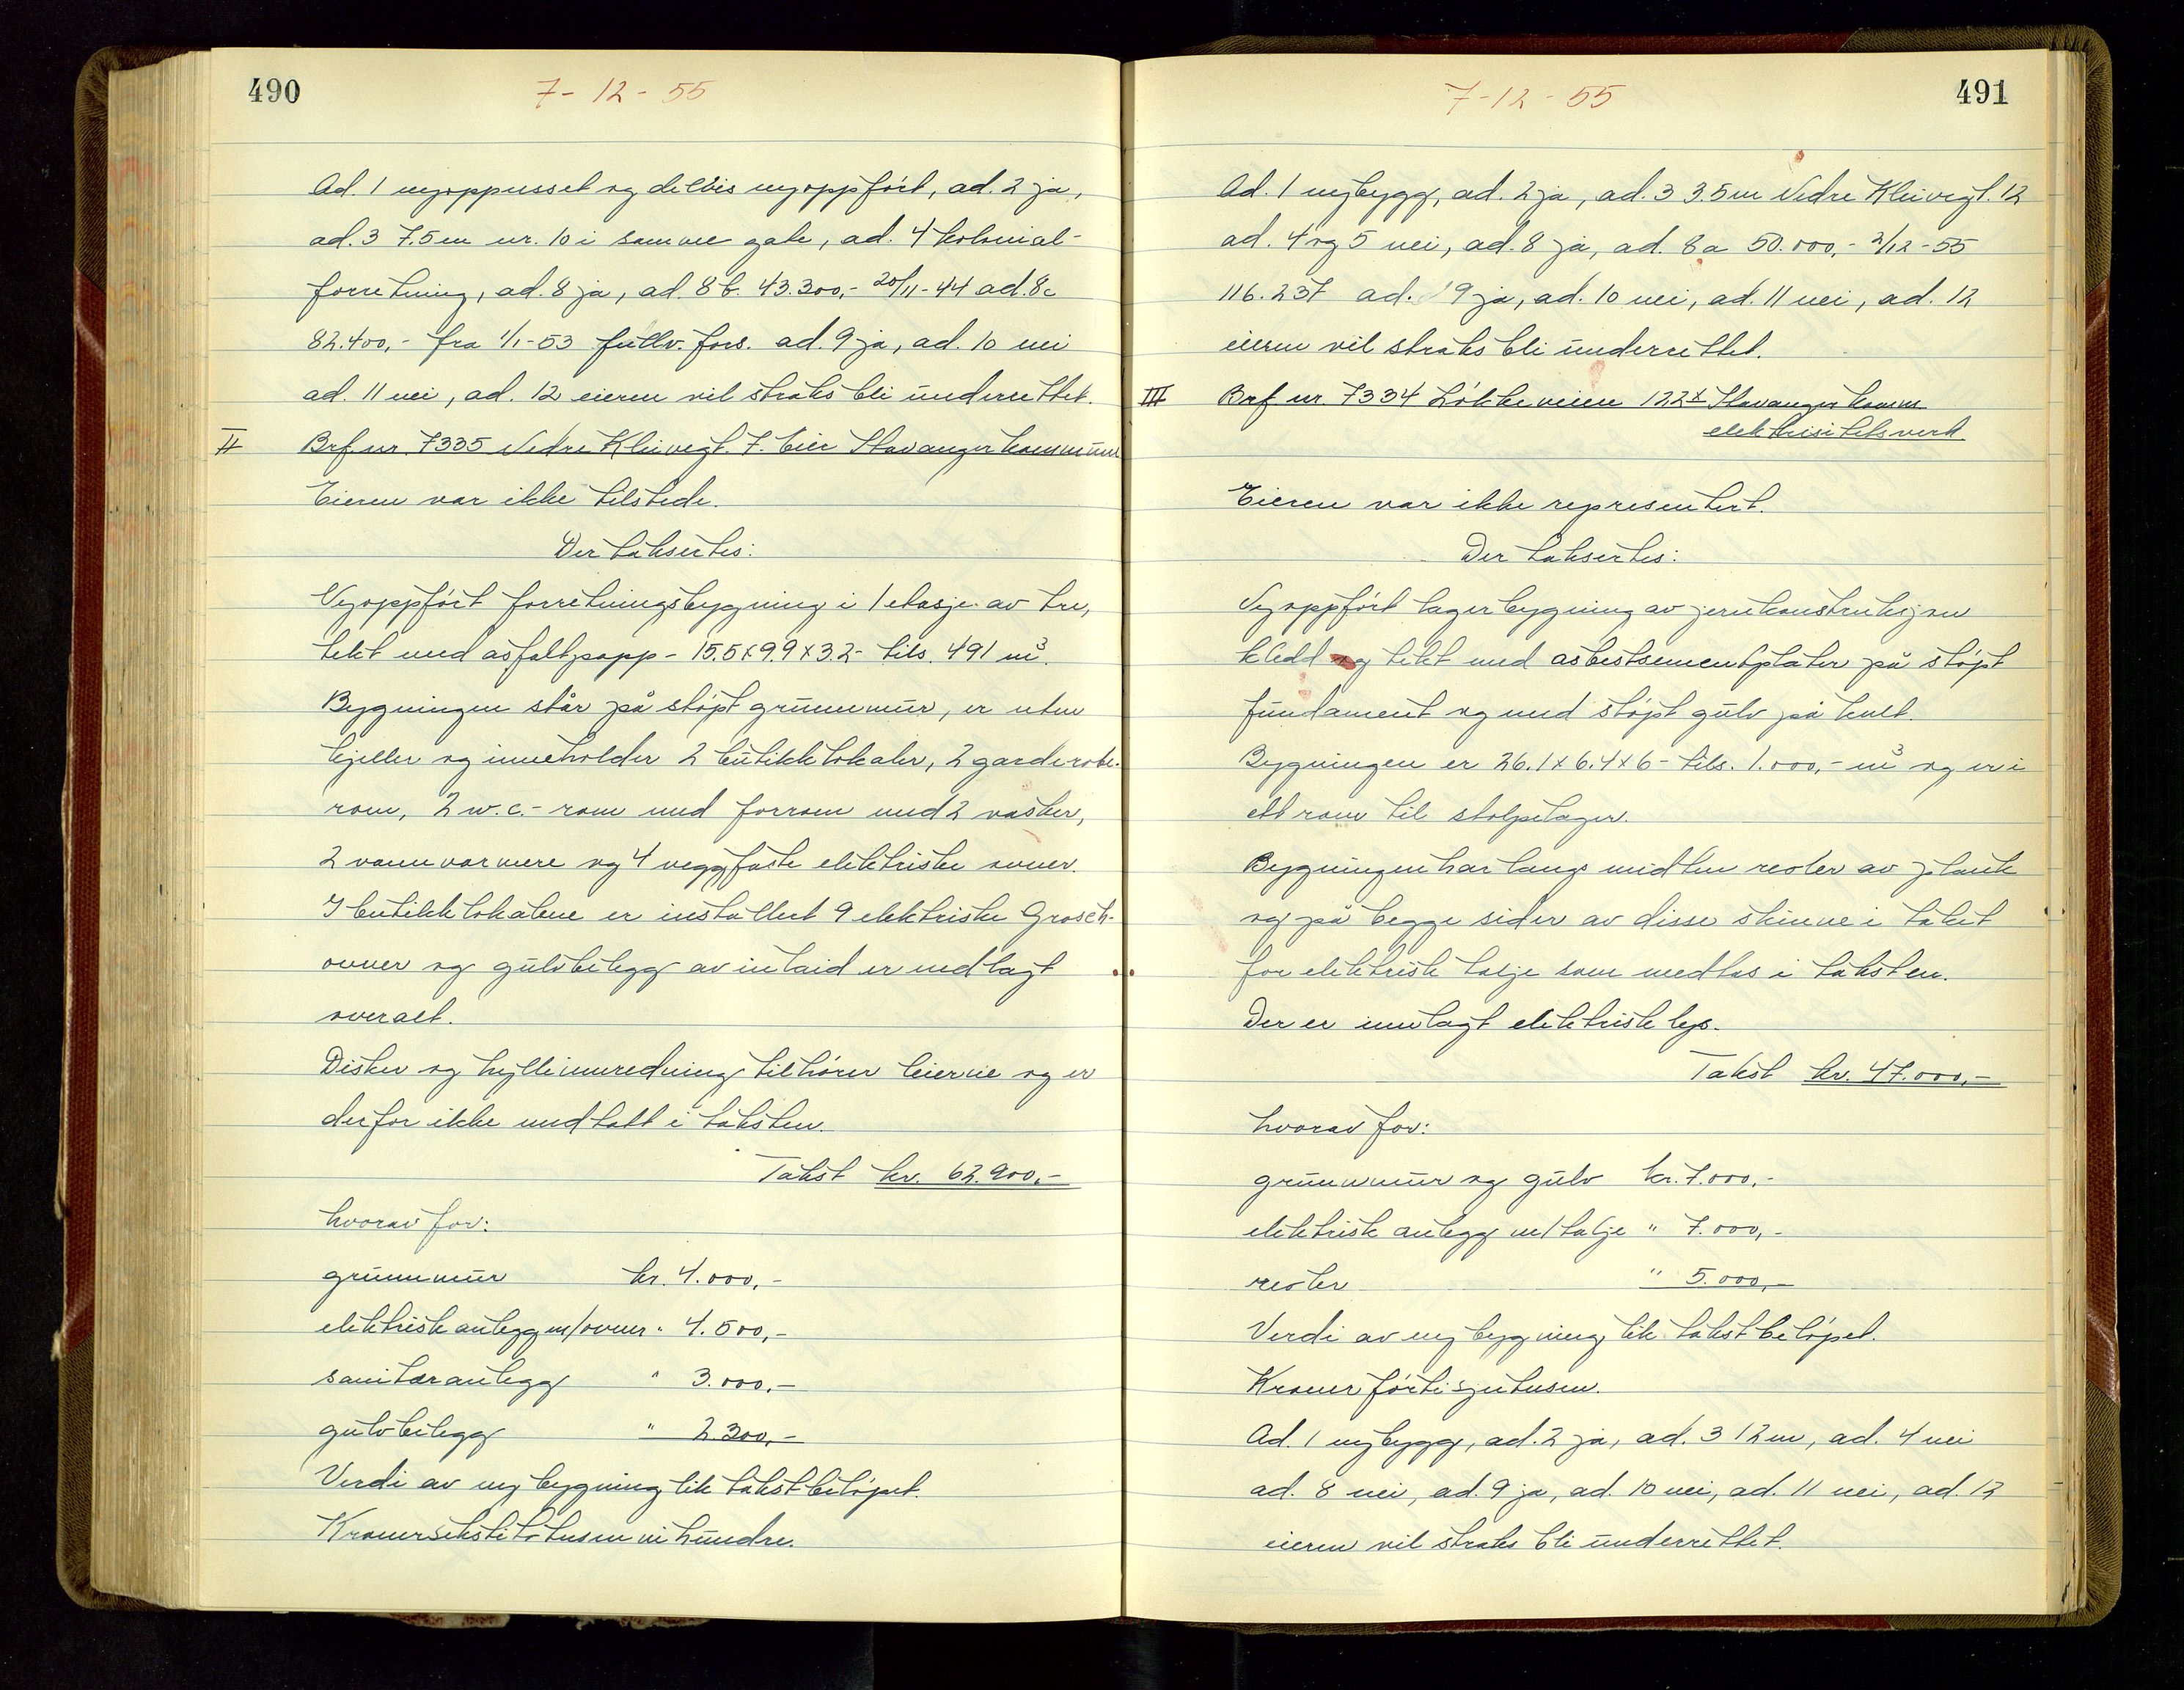 490
7-12-55
Ad. 1 nyoppusset og delvis nyoppført, ad. 2 ja,
ad. 3 7.5 m nr. 10 i samme gate, ad. 4 kolonial-
forretning, ad. 8 ja, ad. 8 b. 43.300,- 20/11-44 ad. 8c
82.400,- fra 1/1-53 fullv. fors. ad. 9 ja, ad. 10 nei
ad. 11 nei, ad. 12 eieren vil straks bli underrettet.
II Brf. nr. 7335 Nedre Kleivegt. 7. Eier Stavanger kommune
Eieren var ikke tilstede.
Der taksertes:
Nyoppført forretningsbygning i 1 etasje av tre,
tekt med asfaltpapp - 15.5x9.9x3.2 - tils. 491 m³.
Bygningen står på støpt grunnmur, er uten
kjeller og inneholder 2 butikklokaler, 2 garderobe-
rom, 2 w.c.-rom med forrom med 2 vasker,
2 vannvarmere og 4 veggfaste elektriske ovner.
I butikklokalene er installert 9 elektriske Grosch-
ovner og gulvbelegg av inlaid er nedlagt
overalt.
Disker og hylleinnredning tilhører leierne og er
derfor ikke medtatt i taksten.
Takst kr. 62.900,-
hvorav for:
grunnmur kr. 4.000,-
elektrisk anlegg m/ovner " 4.500,-
sanitæranlegg " 3.000,-
gulvbelegg " 2.300,-
Verdi av ny bygning lik takstbeløpet.
Kroner sekstitotusen nihundre.
491
7-12-55
Ad. 1 nybygg, ad. 2 ja, ad. 3 3.5 m Nedre Kleivegt. 12
ad. 4 og 5 nei, ad. 8 ja, ad. 8 a 50.000,- 2/12-55
116.237 ad. 9 ja, ad. 10 nei, ad. 11 nei, ad. 12
eieren vil straks bli underrettet.
III Brf nr. 7334 Løkkeveien 122x Stavanger komm.
elektrisitetsverk
Eieren var ikke representert.
Der taksertes:
Nyoppført lagerbygning av jernkonstruksjon
kledd og tekt med asbestsementplater på støpt
fundament og med støpt gulv på kult.
Bygningen er 26.1x6.4x6 - tils. 1.000,- m³ og er i
ett rom til stolpelager.
Bygningen har langs midten reoler av plank
og på begge sider av disse skinne i taket
for elektrisk talje som medtas i taksten.
Der er innlagt elektrisk lys.
Takst kr. 47.000,-
hvorav for:
grunnmur og gulv kr. 7.000,-
elektrisk anlegg m/talje " 7.000,-
reoler " 5.000,-
Verdi av ny bygning lik takstbeløpet.
Kroner førtisjutusen.
Ad. 1 nybygg, ad. 2 ja, ad. 3 12 m, ad. 4 nei
ad. 8 nei, ad. 9 ja, ad. 10 nei, ad. 11 nei, ad. 12
eieren vil straks bli underrettet.